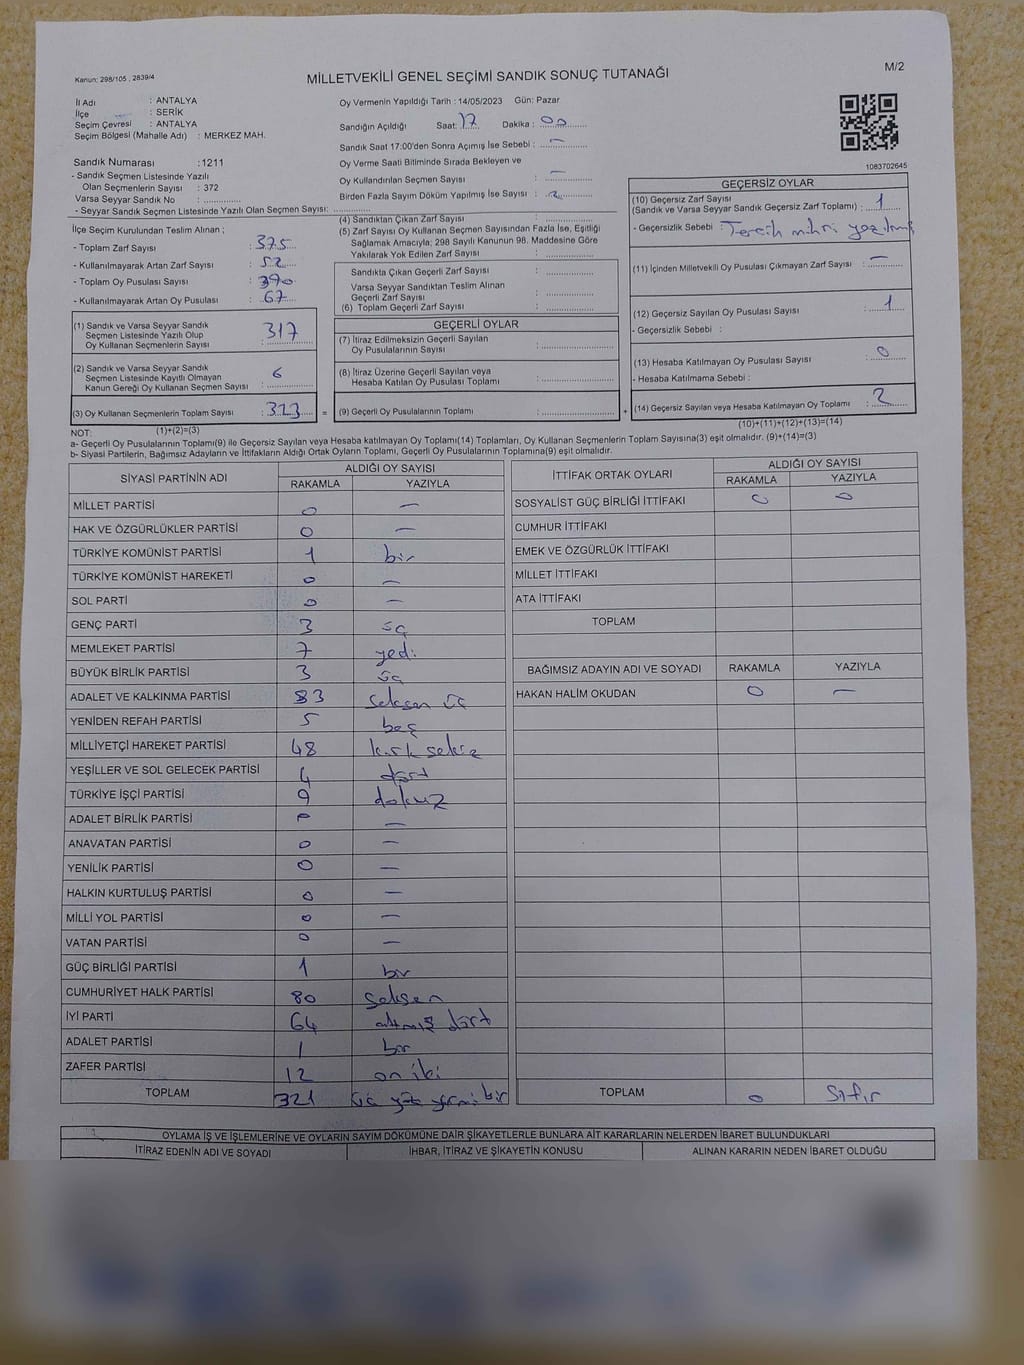 Kanun: 298/105 , 2839/4
MİLLETVEKİLİ GENEL SEÇİMİ SANDIK SONUÇ TUTANAĞI
M/2
İl Adı : ANTALYA
İlçe : SERİK
Seçim Çevresi : ANTALYA
Seçim Bölgesi (Mahalle Adı) : MERKEZ MAH.
Sandık Numarası :1211
- Sandık Seçmen Listesinde Yazılı
Olan Seçmenlerin Sayısı : 372
Varsa Seyyar Sandık No : ............
- Seyyar Sandık Seçmen Listesinde Yazılı Olan Seçmen Sayısı: ............
İlçe Seçim Kurulundan Teslim Alınan ;
- Toplam Zarf Sayısı : 375
- Kullanılmayarak Artan Zarf Sayısı : 52
- Toplam Oy Pusulası Sayısı : 390
- Kullanılmayarak Artan Oy Pusulası : 67
(1) Sandık ve Varsa Seyyar Sandık
Seçmen Listesinde Yazılı Olup
Oy Kullanan Seçmenlerin Sayısı : 317
(2) Sandık ve Varsa Seyyar Sandık
Seçmen Listesinde Kayıtlı Olmayan
Kanun Gereği Oy Kullanan Seçmen Sayısı : 6
(3) Oy Kullanan Seçmenlerin Toplam Sayısı : 323 =
(1)+(2)=(3)
Oy Vermenin Yapıldığı Tarih : 14/05/2023 Gün: Pazar
Sandığın Açıldığı Saat: 17 Dakika : 00
Sandık Saat 17:00'den Sonra Açımış İse Sebebi : —
Oy Verme Saati Bitiminde Sırada Bekleyen ve
Oy Kullandırılan Seçmen Sayısı : —
Birden Fazla Sayım Döküm Yapılmış İse Sayısı :
(4) Sandıktan Çıkan Zarf Sayısı : ............
(5) Zarf Sayısı Oy Kullanan Seçmen Sayısından Fazla İse, Eşitliği
Sağlamak Amacıyla; 298 Sayılı Kanunun 98. Maddesine Göre
Yakılarak Yok Edilen Zarf Sayısı : ............
Sandıkta Çıkan Geçerli Zarf Sayısı : ............
Varsa Seyyar Sandıktan Teslim Alınan
Geçerli Zarf Sayısı : ............
(6) Toplam Geçerli Zarf Sayısı : ............
GEÇERLİ OYLAR
(7) İtiraz Edilmeksizin Geçerli Sayılan
Oy Pusulalarının Sayısı : ............
(8) İtiraz Üzerine Geçerli Sayılan veya
Hesaba Katılan Oy Pusulası Toplamı : ............
(9) Geçerli Oy Pusulalarının Toplamı : ............ +
1083702645
GEÇERSİZ OYLAR
(10) Geçersiz Zarf Sayısı
(Sandık ve Varsa Seyyar Sandık Geçersiz Zarf Toplamı) : 1
- Geçersizlik Sebebi : Tercih mührü
(11) İçinden Milletvekili Oy Pusulası Çıkmayan Zarf Sayısı : —
(12) Geçersiz Sayılan Oy Pusulası Sayısı : 1
- Geçersizlik Sebebi :
(13) Hesaba Katılmayan Oy Pusulası Sayısı : 0
- Hesaba Katılmama Sebebi :
(14) Geçersiz Sayılan veya Hesaba Katılmayan Oy Toplamı : 2
(10)+(11)+(12)+(13)=(14)
NOT:
a- Geçerli Oy Pusulalarının Toplamı(9) ile Geçersiz Sayılan veya Hesaba katılmayan Oy Toplamı(14) Toplamları, Oy Kullanan Seçmenlerin Toplam Sayısına(3) eşit olmalıdır. (9)+(14)=(3)
b- Siyasi Partilerin, Bağımsız Adayların ve İttifakların Aldığı Ortak Oyların Toplamı, Geçerli Oy Pusulalarının Toplamına(9) eşit olmalıdır.
SİYASİ PARTİNİN ADI ALDIĞI OY SAYISI
RAKAMLA YAZIYLA
MİLLET PARTİSİ 0 —
HAK VE ÖZGÜRLÜKLER PARTİSİ 0 —
TÜRKİYE KOMÜNİST PARTİSİ 1 bir
TÜRKİYE KOMÜNİST HAREKETİ 0 —
SOL PARTİ 0 —
GENÇ PARTİ 3 üç
MEMLEKET PARTİSİ 7 yedi
BÜYÜK BİRLİK PARTİSİ 3 üç
ADALET VE KALKINMA PARTİSİ 83 seksen üç
YENİDEN REFAH PARTİSİ 5 beş
MİLLİYETÇİ HAREKET PARTİSİ 48 kırk sekiz
YEŞİLLER VE SOL GELECEK PARTİSİ 4 dört
TÜRKİYE İŞÇİ PARTİSİ 9 dokuz
ADALET BİRLİK PARTİSİ 0 —
ANAVATAN PARTİSİ 0 —
YENİLİK PARTİSİ 0 —
HALKIN KURTULUŞ PARTİSİ 0 —
MİLLİ YOL PARTİSİ 0 —
VATAN PARTİSİ 0 —
GÜÇ BİRLİĞİ PARTİSİ 1 bir
CUMHURİYET HALK PARTİSİ 80 seksen
İYİ PARTİ 64 altmış dört
ADALET PARTİSİ 1 bir
ZAFER PARTİSİ 12 on iki
TOPLAM 321 üç yüz yirmi bir
İTTİFAK ORTAK OYLARI ALDIĞI OY SAYISI
RAKAMLA YAZIYLA
SOSYALİST GÜÇ BİRLİĞİ İTTİFAKI 0 0
CUMHUR İTTİFAKI
EMEK VE ÖZGÜRLÜK İTTİFAKI
MİLLET İTTİFAKI
ATA İTTİFAKI
TOPLAM
BAĞIMSIZ ADAYIN ADI VE SOYADI RAKAMLA YAZIYLA
HAKAN HALİM OKUDAN 0 —
TOPLAM 0 Sıfır
OYLAMA İŞ VE İŞLEMLERİNE VE OYLARIN SAYIM DÖKÜMÜNE DAİR ŞİKAYETLERLE BUNLARA AİT KARARLARIN NELERDEN İBARET BULUNDUKLARI
İTİRAZ EDENİN ADI VE SOYADI İHBAR, İTİRAZ VE ŞİKAYETİN KONUSU ALINAN KARARIN NEDEN İBARET OLDUĞU